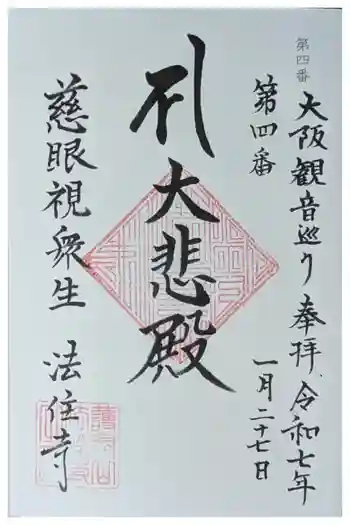 第四番
大阪観音巡り 奉拝 令和七年
第四番 一月二十七日
大悲殿
慈眼視衆生 法住寺